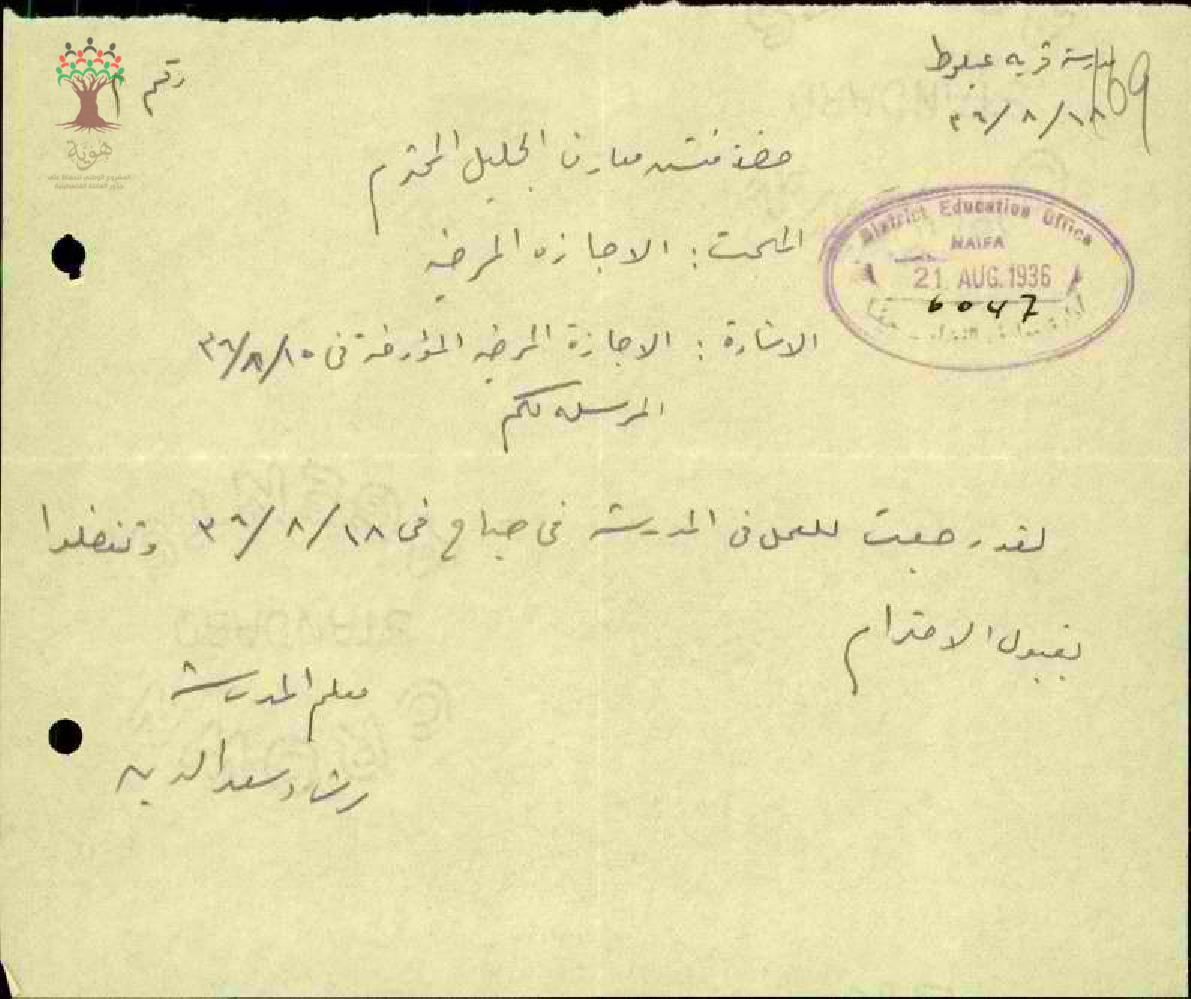 مدرسة قرية عبلوط
169
رقم ٢
٣٦/٨/١٨
حضرة مفتش معارف الجليل المحترم
هوية
District Education Office
HAIFA
21 AUG. 1936
6047
المبحث : الاجازه المرضيه
الاشارة : الاجازة المرضيه المؤرخة في ٣٦/٨/١٥
المرسله لكم
لقد رجعت للعمل في المدرسة في صباح في ٣٦/٨/١٨ وتفضلوا
بقبول الاحترام
معلم المدرسة
رشاد سعد الدين